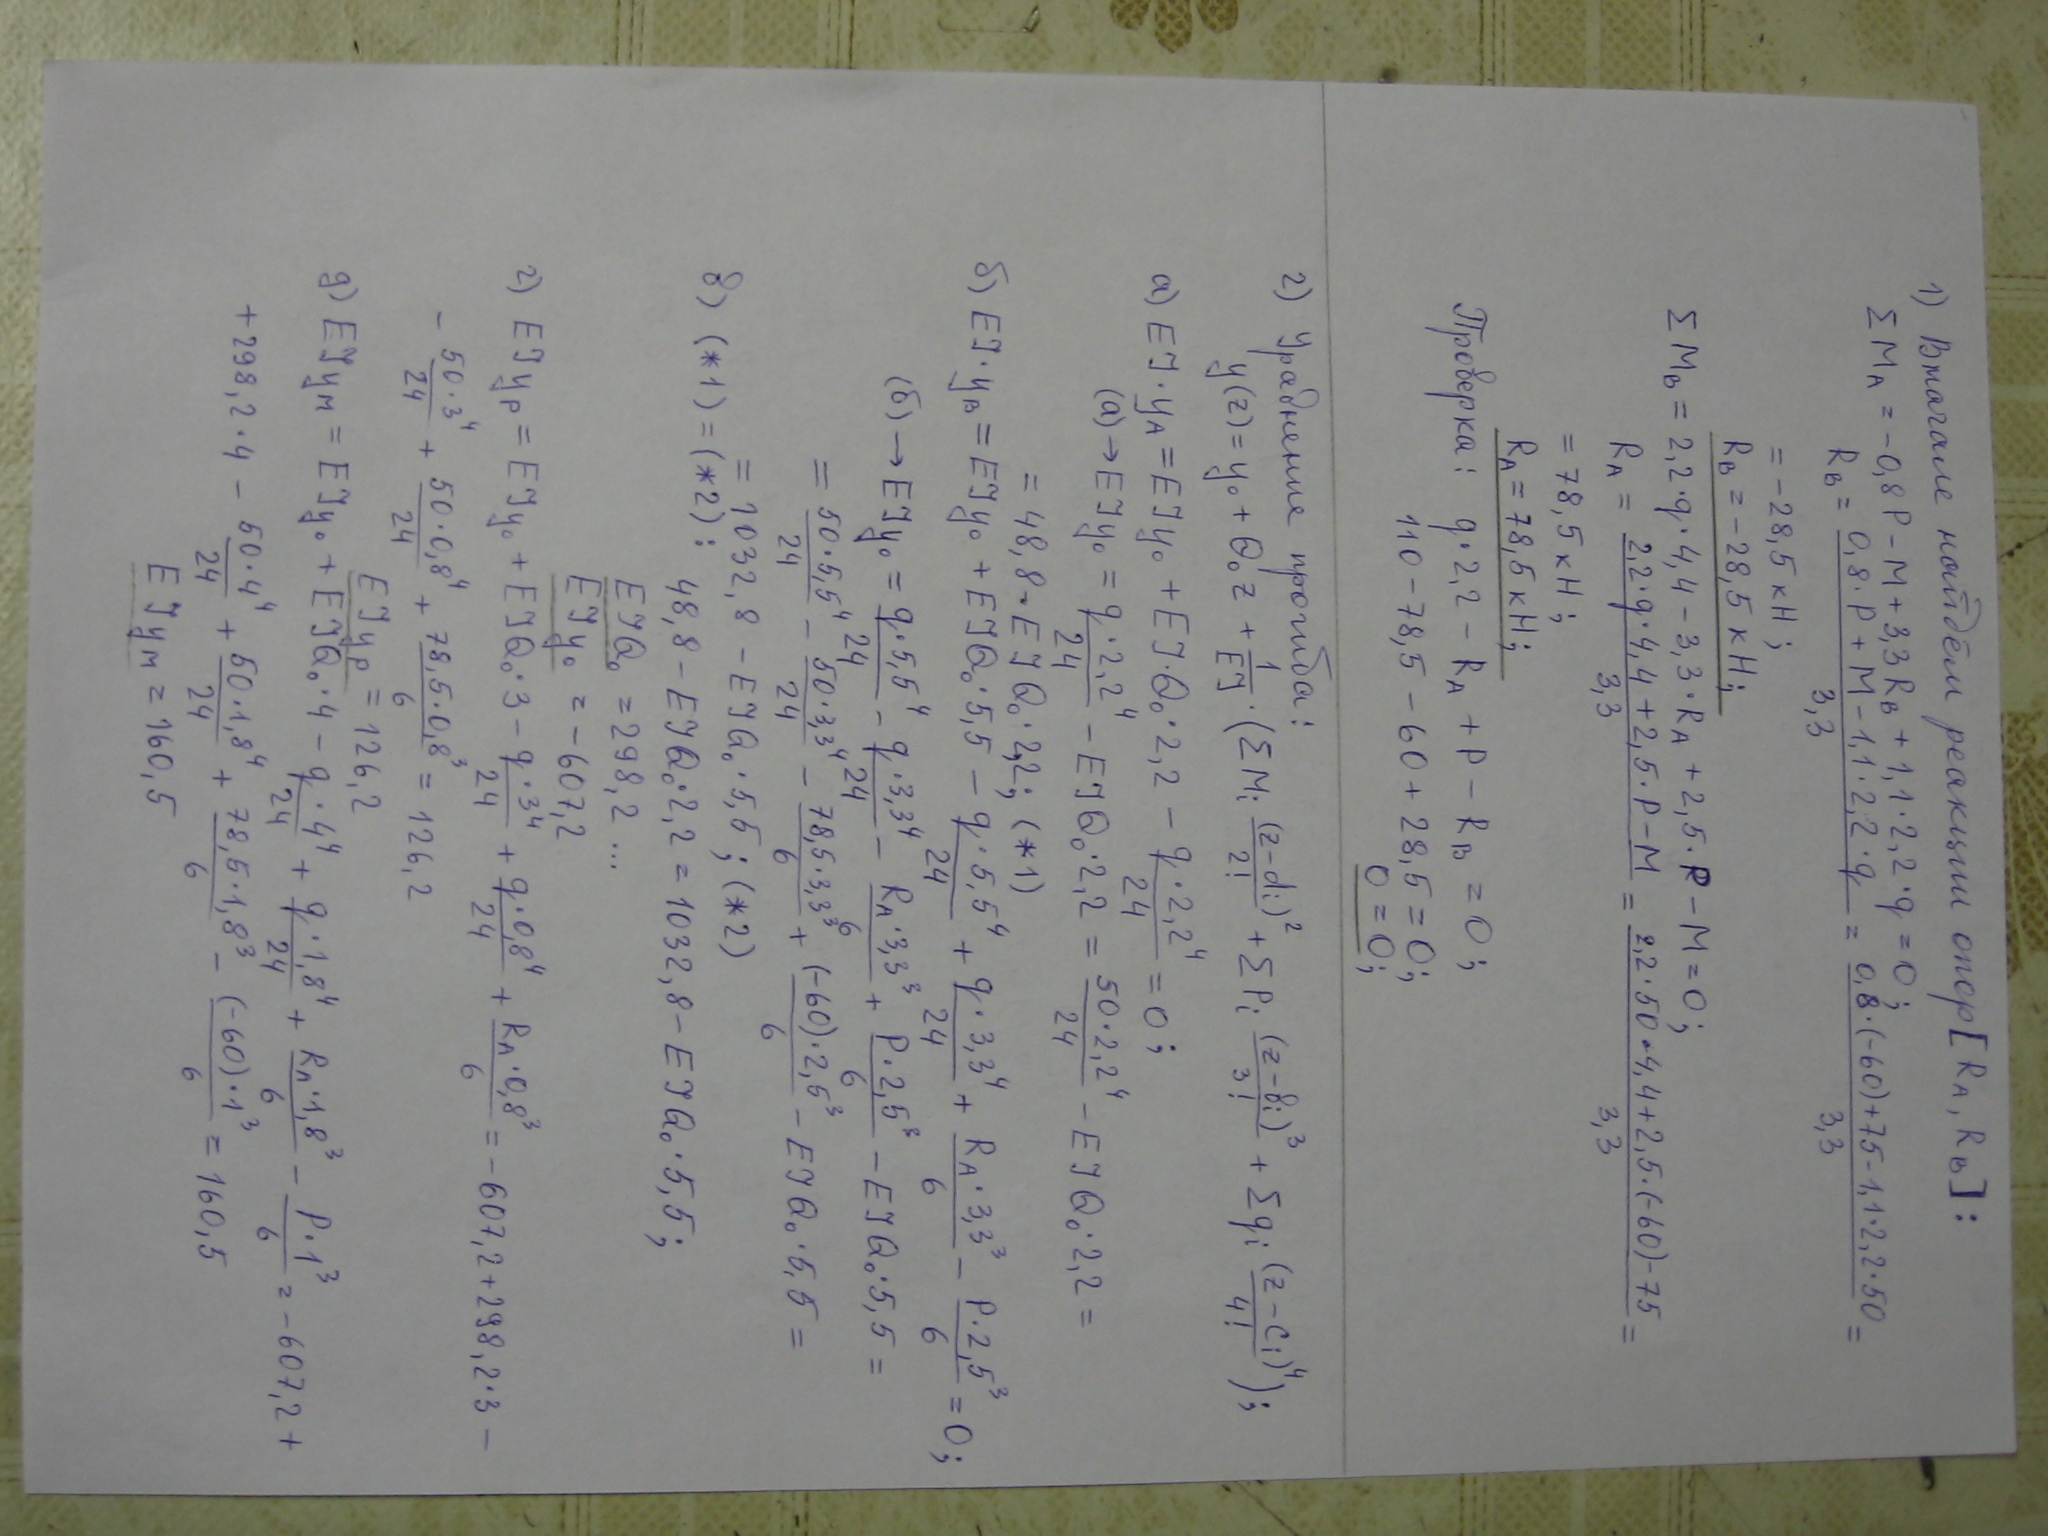 1) Вначале найдём реакции опор [R_A, R_B]:
ΣM_A = -0,8P - M + 3,3R_B + 1,1·2,2·q = 0;
R_B = (0,8·P + M - 1,1·2,2·q)/3,3 = (0,8·(-60) + 75 - 1,1·2,2·50)/3,3 =
= -28,5 кН;
R_B = -28,5 кН;
ΣM_B = 2,2·q·4,4 - 3,3·R_A + 2,5·P - M = 0;
R_A = (2,2·q·4,4 + 2,5·P - M)/3,3 = (2,2·50·4,4 + 2,5·(-60) - 75)/3,3 =
= 78,5 кН;
R_A = 78,5 кН;
Проверка: q·2,2 - R_A + P - R_B = 0;
110 - 78,5 - 60 + 28,5 = 0;
0 = 0;
2) Уравнение прогиба:
y(z) = y₀ + Q₀z + 1/EJ·(ΣM_i (z-d_i)²/2! + ΣP_i (z-b_i)³/3! + Σq_i (z-c_i)⁴/4!);
а) EJ·y_A = EJy₀ + EJ·Q₀·2,2 - q·2,2⁴/24 = 0;
(а) → EJy₀ = q·2,2⁴/24 - EJQ₀·2,2 = 50·2,2⁴/24 - EJQ₀·2,2 =
= 48,8 - EJQ₀·2,2; (*1)
б) EJ·y_B = EJy₀ + EJQ₀·5,5 - q·5,5⁴/24 + q·3,3⁴/24 + R_A·3,3³/6 - P·2,5³/6 = 0;
(б) → EJy₀ = q·5,5⁴/24 - q·3,3⁴/24 - R_A·3,3³/6 + P·2,5³/6 - EJQ₀·5,5 =
= 50·5,5⁴/24 - 50·3,3⁴/24 - 78,5·3,3³/6 + (-60)·2,5³/6 - EJQ₀·5,5 =
= 1032,8 - EJQ₀·5,5; (*2)
в) (*1) = (*2):
48,8 - EJQ₀·2,2 = 1032,8 - EJQ₀·5,5;
EJQ₀ = 298,2 ...
EJy₀ = -607,2
г) EJy_P = EJy₀ + EJQ₀·3 - q·3⁴/24 + q·0,8⁴/24 + R_A·0,8³/6 = -607,2 + 298,2·3 -
- 50·3⁴/24 + 50·0,8⁴/24 + 78,5·0,8³/6 = 126,2
EJy_P = 126,2
д) EJy_M = EJy₀ + EJQ₀·4 - q·4⁴/24 + q·1,8⁴/24 + R_A·1,8³/6 - P·1³/6 = -607,2 +
+ 298,2·4 - 50·4⁴/24 + 50·1,8⁴/24 + 78,5·1,8³/6 - (-60)·1³/6 = 160,5
EJy_M = 160,5